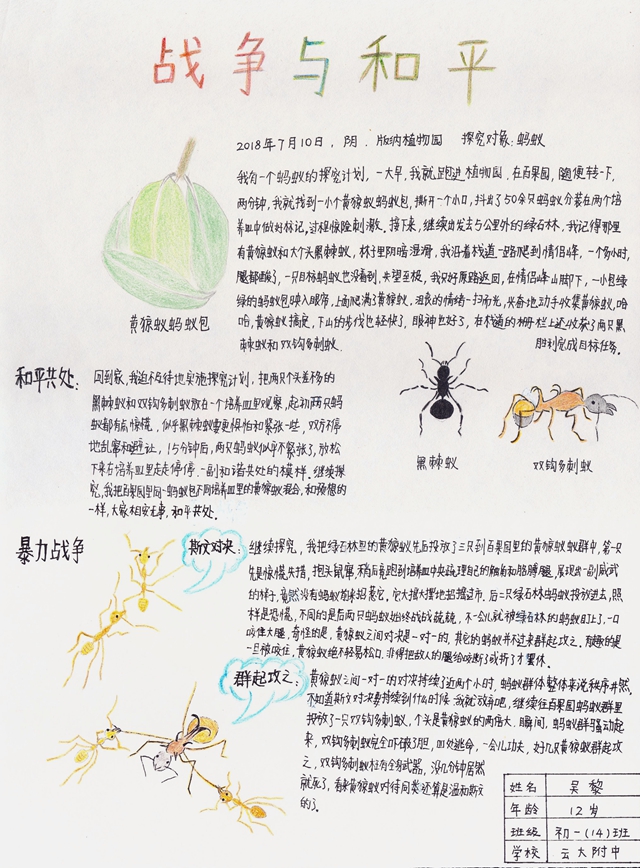 战争与和平
2018年7月10日，阴，版纳植物园 探究对象：蚂蚁
我有一个蚂蚁的探究计划，一大早，我就跑进植物园，在百果园，随便转一下，
两分钟，我就找到一小个黄猄蚁蚂蚁包，撕开一个小口，抖出了50余只蚂蚁分装在两个培
养皿中做好标记，过程惊险刺激。接下来，继续出发去5公里外的绿石林，我记得那里
有黄猄蚁和大个头黑棘蚁，林子里阴暗湿滑，我沿着栈道一路爬到情侣峰，一个多小时，
腿都酸了，一只目标蚂蚁也没看到，失望至极，我只好原路返回，在情侣峰山脚下，一小包绿
绿的蚂蚁包映入眼帘，上面爬满了黄猄蚁，沮丧的情绪一扫而光，兴奋地动手收集黄猄蚁，哈
哈，黄猄蚁搞定，下山的步伐也轻快了，眼神也好了，在栈道的栅栏上还收获了两只黑
棘蚁和双钩多刺蚁. 胜利完成目标任务.
黄猄蚁蚂蚁包
黑棘蚁
双钩多刺蚁
和平共处：
回到家，我迫不及待地实施探究计划，把两只个头差不多的
黑棘蚁和双钩多刺蚁放在一个培养皿里观察，起初两只蚂
蚁都有点惊慌，似乎黑棘蚁要更惧怕和紧张一些，双方不停
地乱窜和避让，15分钟后，两只蚂蚁似乎不紧张了，放松
下来在培养皿里走走停停，一副和谐共处的模样。继续探
究，我把百果园里同一蚂蚁包不同培养皿里的黄猄蚁混合，和预想的
一样，大家相安无事，和平共处。
暴力战争
斯文对决：
继续探究，我把绿石林里的黄猄蚁先后投放了三只到百果园里的黄猄蚁蚁群中，第一只
先是惊慌失措，抱头鼠窜，稍后竟跑到培养皿中央梳理自己的触角和胳膊腿，展现出一副威武
的样子，竟然没有蚂蚁前来招惹它，它大摇大摆地招摇过市，后二只绿石林蚂蚁投放进去，照
样是恐慌，不同的是后两只蚂蚁始终战战兢兢，不一会儿就被绿石林的蚂蚁盯上了，一口
咬住大腿，奇怪的是，黄猄蚁之间对决是一对一的，其它的蚂蚁并不过来群起攻之。有趣的是
一旦被咬住，黄猄蚁绝不轻易松口，非得把敌人的腿给咬断了或折了才罢休。
群起攻之：
黄猄蚁之间一对一的对决持续了近两个小时，蚂蚁群体整体来说秩序井然，
不知道斯文对决要持续到什么时候，我就放弃吧，继续往百果园蚂蚁群里
投放了一只双钩多刺蚁，个头是黄猄蚁的两倍大，瞬间，蚂蚁群骚动起
来，双钩多刺蚁完全吓破了胆，四处逃命，一会儿功夫，好几只黄猄蚁群起攻
之，双钩多刺蚁枉有全身武器，没几分钟居然
就死了，看来黄猄蚁对待同类还算是温和斯文
的了。
姓名 吴黎
年龄 12岁
班级 初一(14)班
学校 云大附中